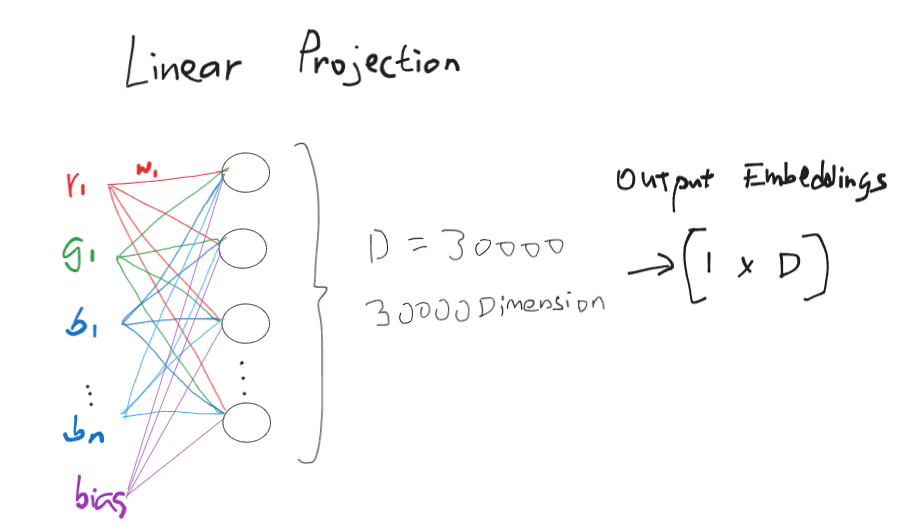 Linear Projection
r₁
w₁
g₁
b₁
⋮
bn
bias
⋮
D = 30000
30000 Dimension
Output Embeddings
→ [1 x D]